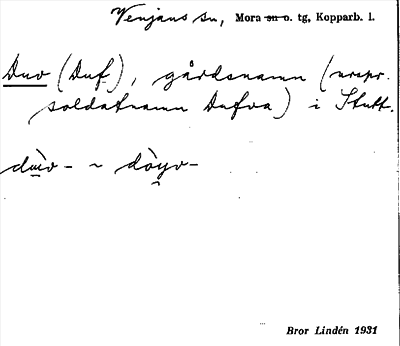 Venjans sn, Mora sn o. tg, Kopparb. l.
Duv (Duf), gårdsnamn (urspr.
soldatnamn Dufva) i Stutt.
Bror Lindén 1931